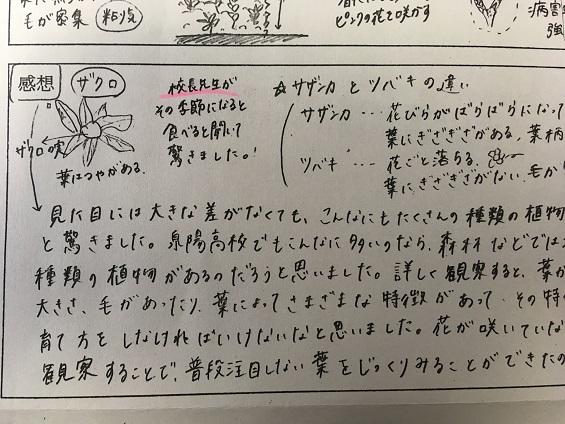 毛が密集
ピンクの花を咲かす
病害
強
感想
ザクロ
ザクロの実
葉はつやがある.
校長先生が
その季節になると
食べると聞いて
驚きました。!
☆ サザンカ と ツバキの違い
サザンカ … 花びらがばらばらになって
葉にぎざぎざがある, 葉柄
ツバキ … 花ごと落ちる.
葉にぎざぎざがない. 毛が
見た目には大きな差がなくても、こんなにもたくさんの種類の植物
と驚きました。泉陽高校でもこんなに多いのなら、森林などでは
種類の植物があるのだろうと思いました。詳しく観察すると、葉が
大きさ、毛があったり、葉によってさまざまな特徴があって、その特
育て方をしなければいけないなと思いました。花が咲いていな
観察することで、普段注目しない葉をじっくりみることができたの